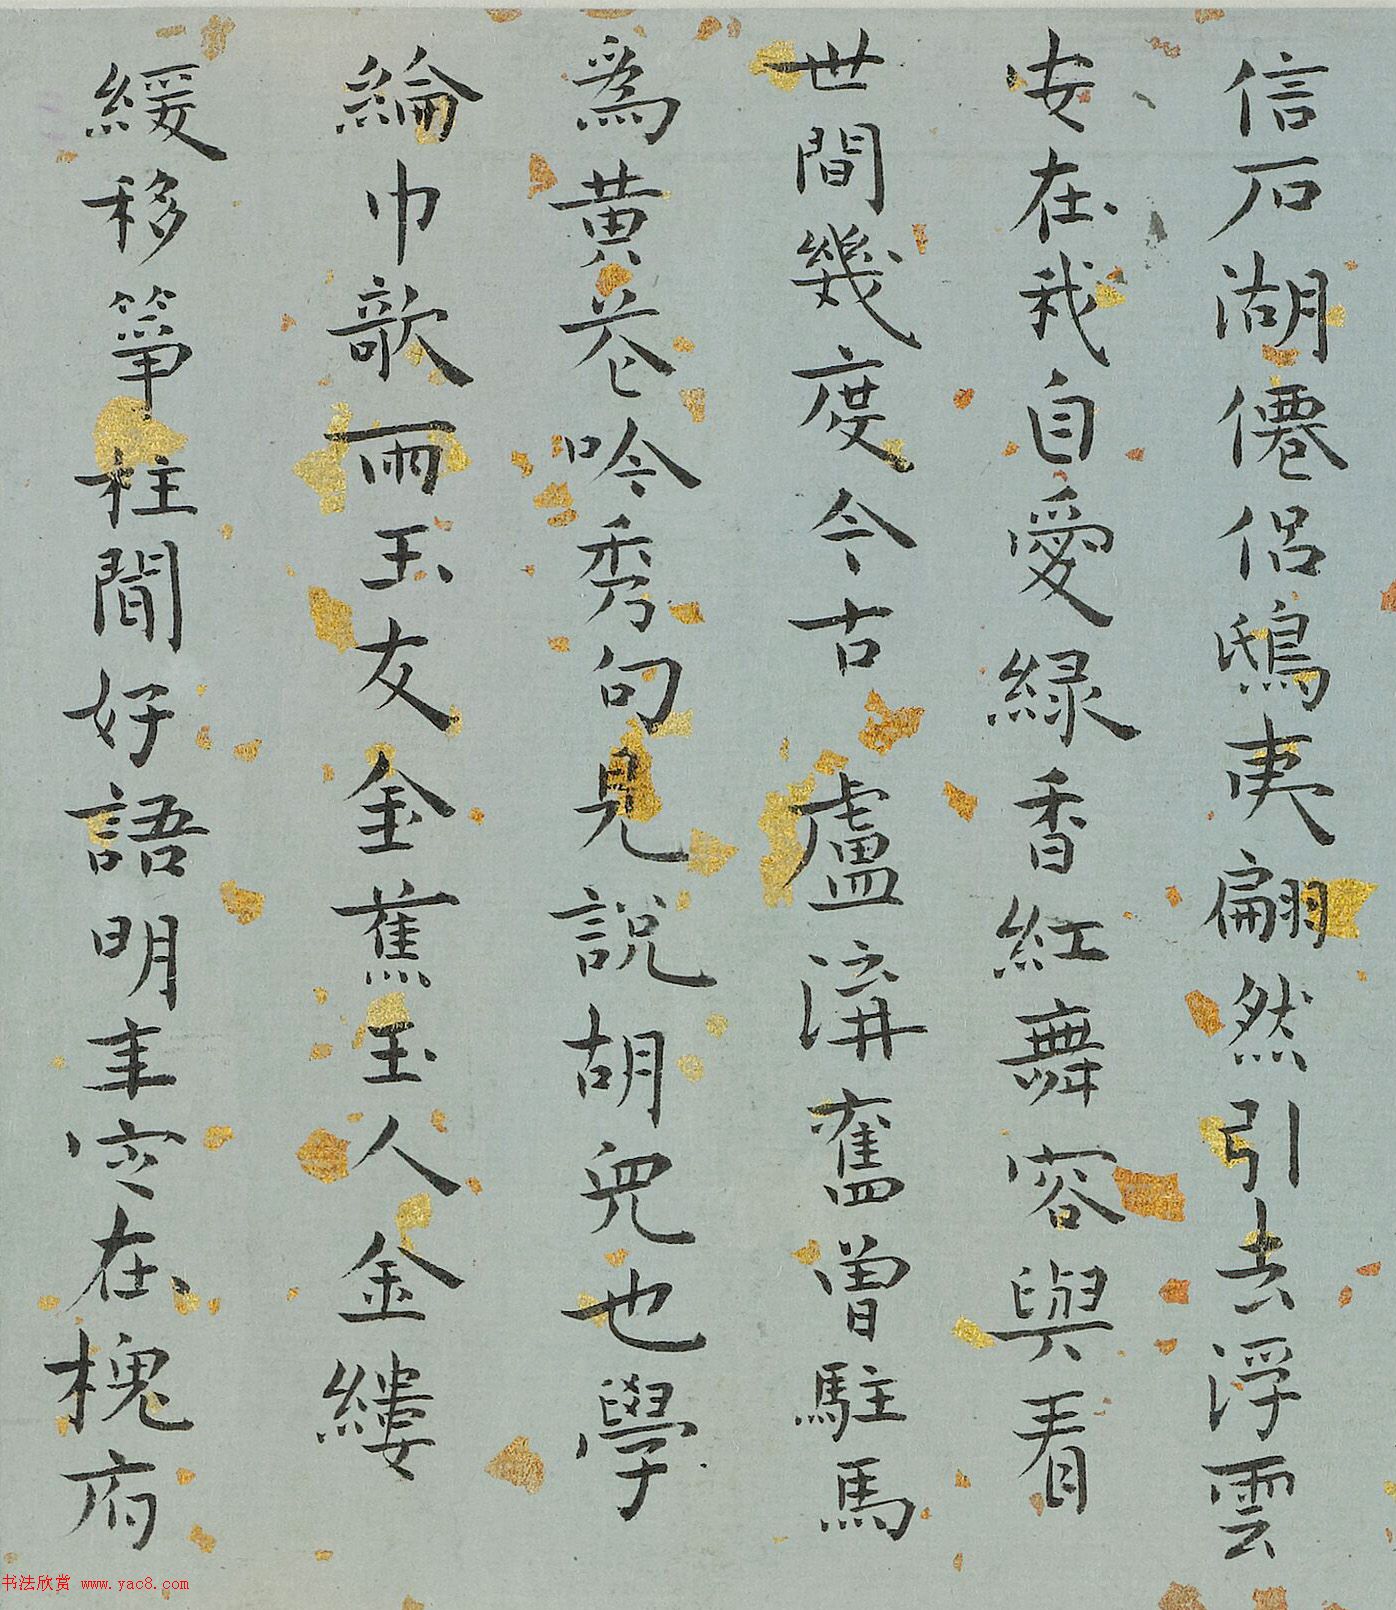 信石湖僊侣鴟夷扁翩然引去浮雲
安在我自愛綠香紅舞容與看
世間幾度今古 盧溝舊曾駐馬
為黃巷吟秀句見說胡兒也學
綸巾歌雨玉友金蕉玉人金縷
緩移箏柱聞好語明年定在槐府
书法欣赏 www.yac8.com